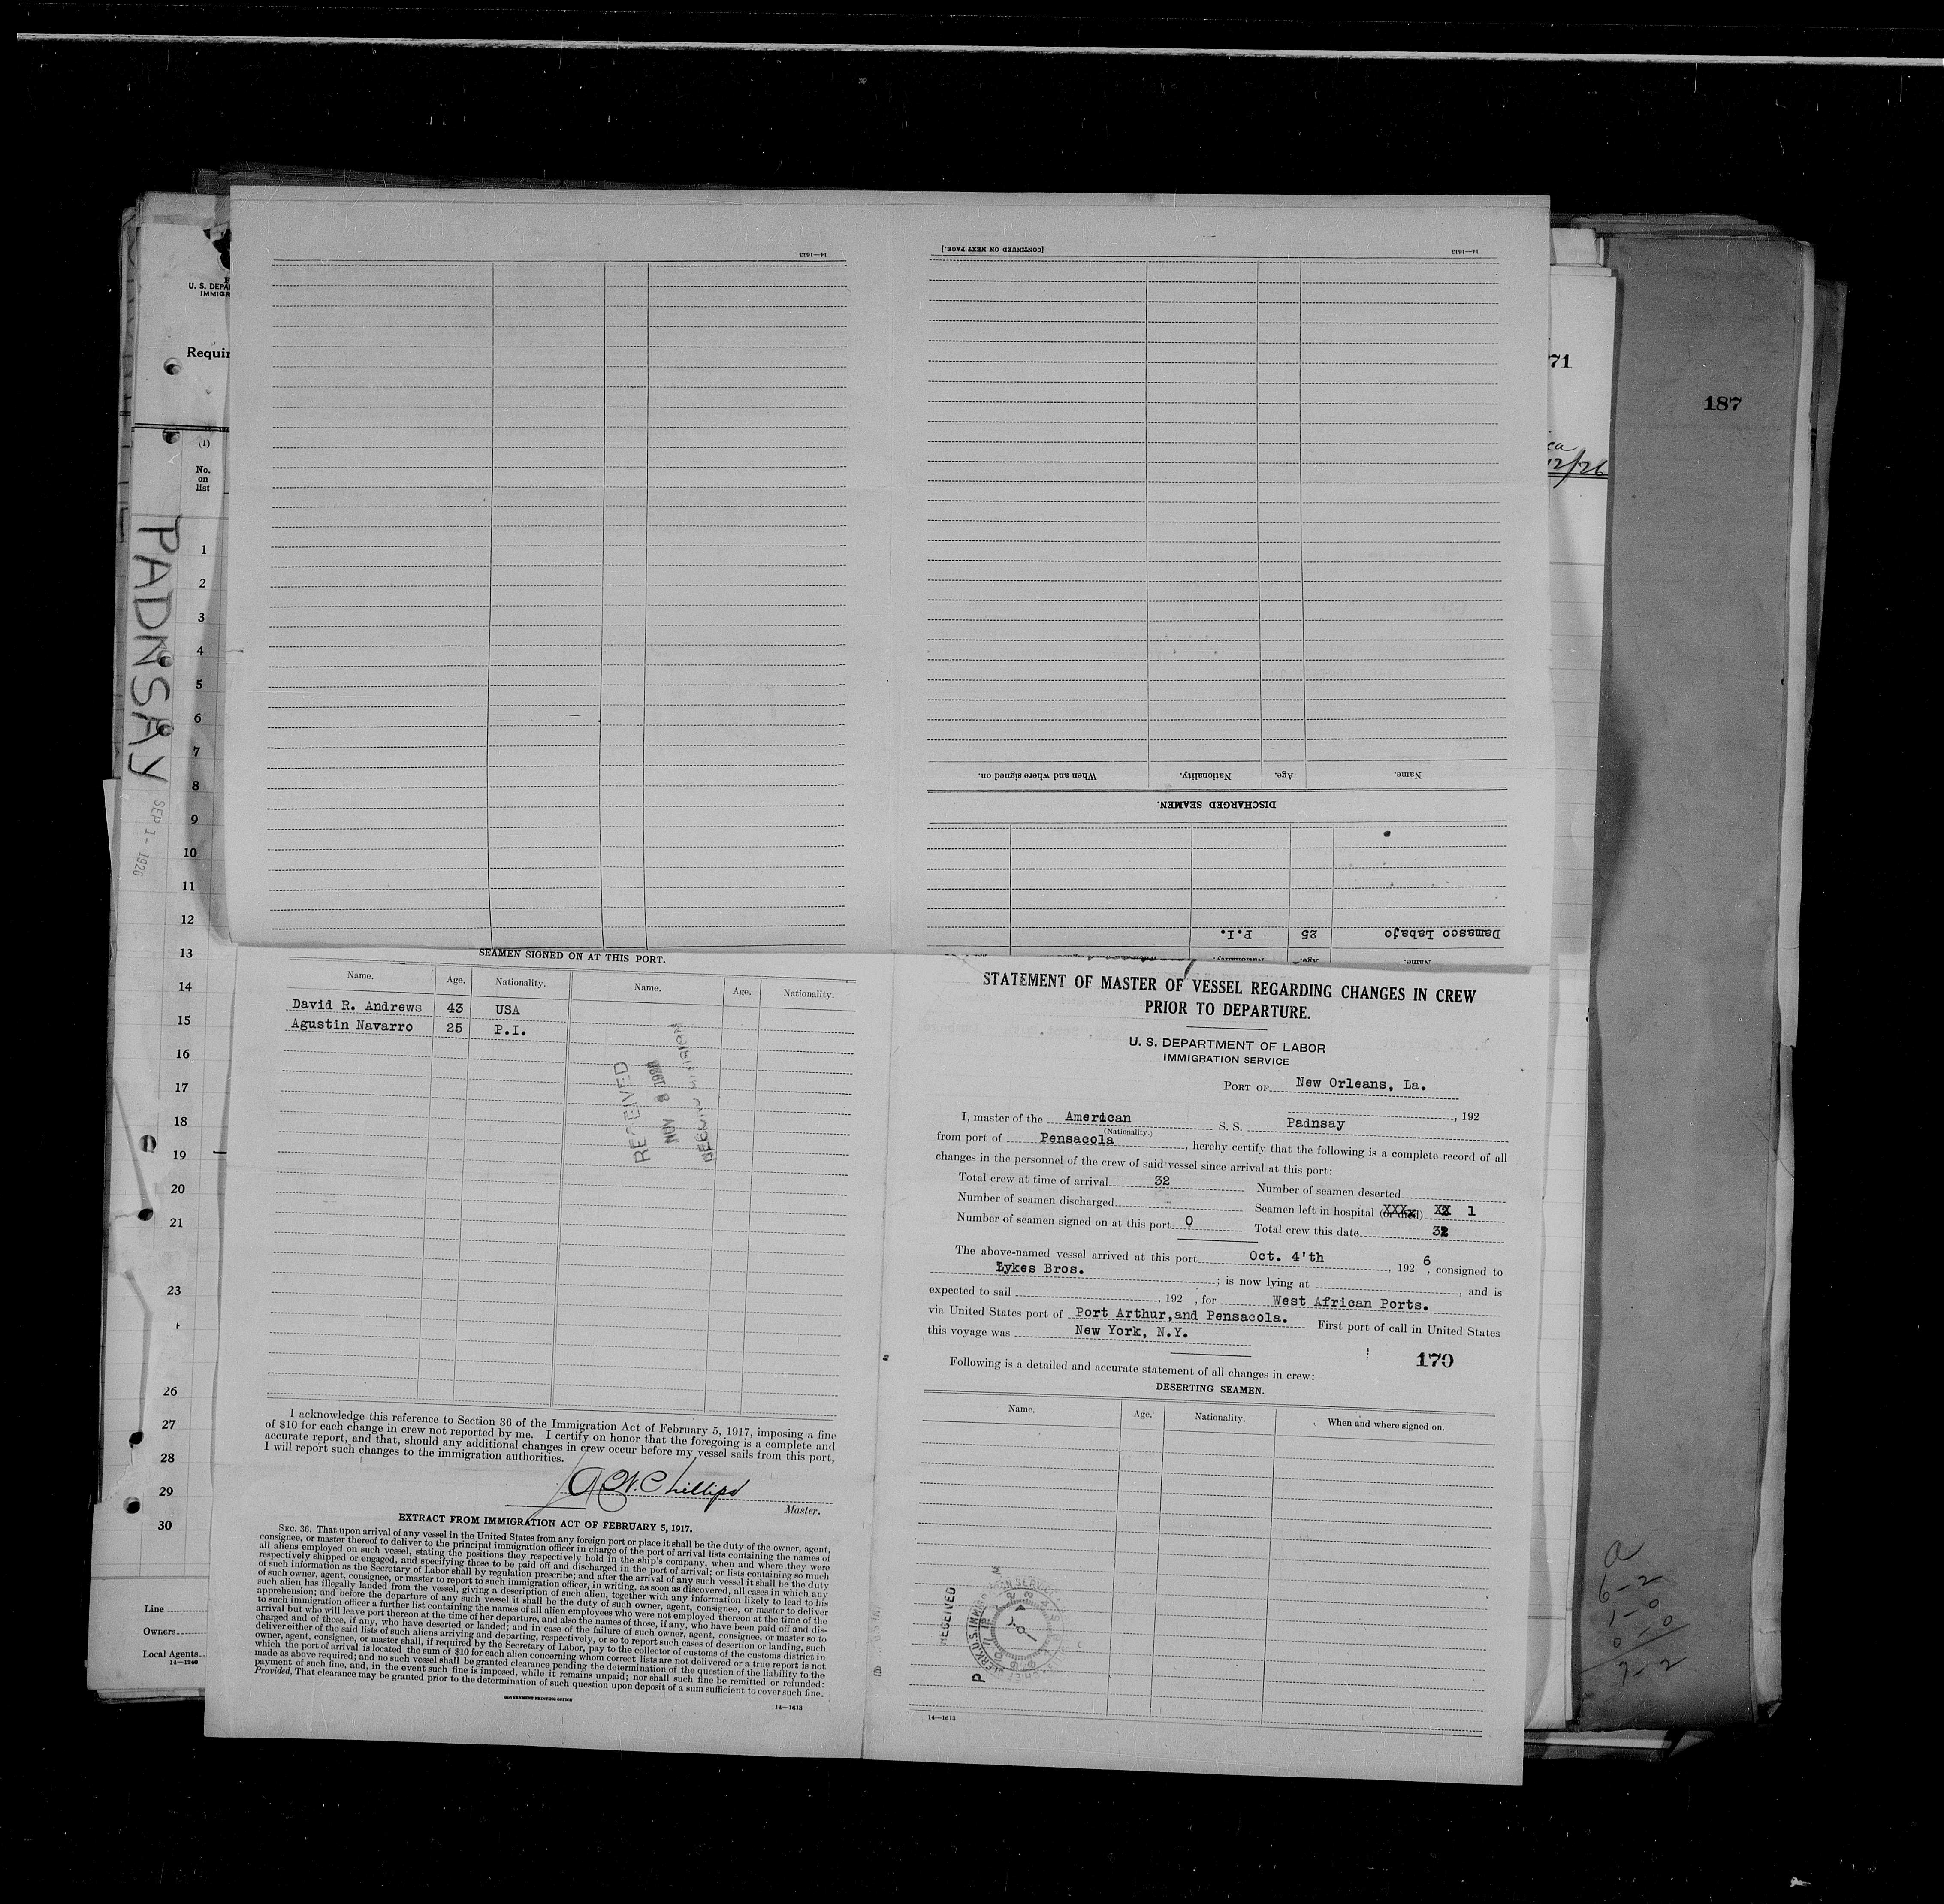 U. S. DEPA
IMMIGR
Requir
(1)
No.
on
list
PADNSAY
SEP 1 - 1926
1
2
3
4
5
6
7
8
9
10
11
12
13
14
15
16
17
18
19
20
21
23
26
27
28
29
30
Line
Owners
Local Agents
14—1240
14—1613
[CONTINUED ON NEXT PAGE.]
14—1613
When and where signed on.
Nationality.
Age.
Name.
DISCHARGED SEAMEN.
Damasco Labajo 25 P.I.
Name. Age. Nationality.
71
12/26
187
SEAMEN SIGNED ON AT THIS PORT.
Name. Age. Nationality. Name. Age. Nationality.
David R. Andrews 43 USA
Agustin Navarro 25 P.I.
RECEIVED
NOV 8 1926
I acknowledge this reference to Section 36 of the Immigration Act of February 5, 1917, imposing a fine
of $10 for each change in crew not reported by me. I certify on honor that the foregoing is a complete and
accurate report, and that, should any additional changes in crew occur before my vessel sails from this port,
I will report such changes to the immigration authorities.
Phillips
Master.
EXTRACT FROM IMMIGRATION ACT OF FEBRUARY 5, 1917.
SEC. 36. That upon arrival of any vessel in the United States from any foreign port or place it shall be the duty of the owner, agent,
consignee, or master thereof to deliver to the principal immigration officer in charge of the port of arrival lists containing the names of
all aliens employed on such vessel, stating the positions they respectively hold in the ship's company, when and where they were
respectively shipped or engaged, and specifying those to be paid off and discharged in the port of arrival; or lists containing so much
of such information as the Secretary of Labor shall by regulation prescribe; and after the arrival of any such vessel it shall be the duty
of such owner, agent, consignee, or master to report to such immigration officer, in writing, as soon as discovered, all cases in which any
such alien has illegally landed from the vessel, giving a description of such alien, together with any information likely to lead to his
apprehension; and before the departure of any such vessel it shall be the duty of such owner, agent, consignee, or master to deliver
to such immigration officer a further list containing the names of all alien employees who were not employed thereon at the time of the
arrival but who will leave port thereon at the time of her departure, and also the names of those, if any, who have been paid off and dis-
charged and of those, if any, who have deserted or landed; and in case of the failure of such owner, agent, consignee, or master so to
deliver either of the said lists of such aliens arriving and departing, respectively, or so to report such cases of desertion or landing, such
owner, agent, consignee, or master shall, if required by the Secretary of Labor, pay to the collector of customs of the customs district in
which the port of arrival is located the sum of $10 for each alien concerning whom correct lists are not delivered or a true report is not
made as above required; and no such vessel shall be granted clearance pending the determination of the question of the liability to the
payment of such fine, and, in the event such fine is imposed, while it remains unpaid; nor shall such fine be remitted or refunded:
Provided, That clearance may be granted prior to the determination of such question upon deposit of a sum sufficient to cover such fine.
GOVERNMENT PRINTING OFFICE
14—1613
STATEMENT OF MASTER OF VESSEL REGARDING CHANGES IN CREW
PRIOR TO DEPARTURE.
U. S. DEPARTMENT OF LABOR
IMMIGRATION SERVICE
PORT OF New Orleans, La.
, 192
I, master of the American S. S. Padnsay
(Nationality.)
from port of Pensacola, hereby certify that the following is a complete record of all
changes in the personnel of the crew of said vessel since arrival at this port:
Total crew at time of arrival 32 Number of seamen deserted
Number of seamen discharged Seamen left in hospital (or died) XX 1
Number of seamen signed on at this port 0 Total crew this date 32
The above-named vessel arrived at this port Oct. 4'th, 1926, consigned to
Lykes Bros.; is now lying at , and is
expected to sail , 192 , for West African Ports.
via United States port of Port Arthur,and Pensacola. First port of call in United States
this voyage was New York, N.Y.
170
Following is a detailed and accurate statement of all changes in crew:
DESERTING SEAMEN.
Name. Age. Nationality. When and where signed on.
RECEIVED
P M
14—1613
a
6-2
1-0
0-0
7-2